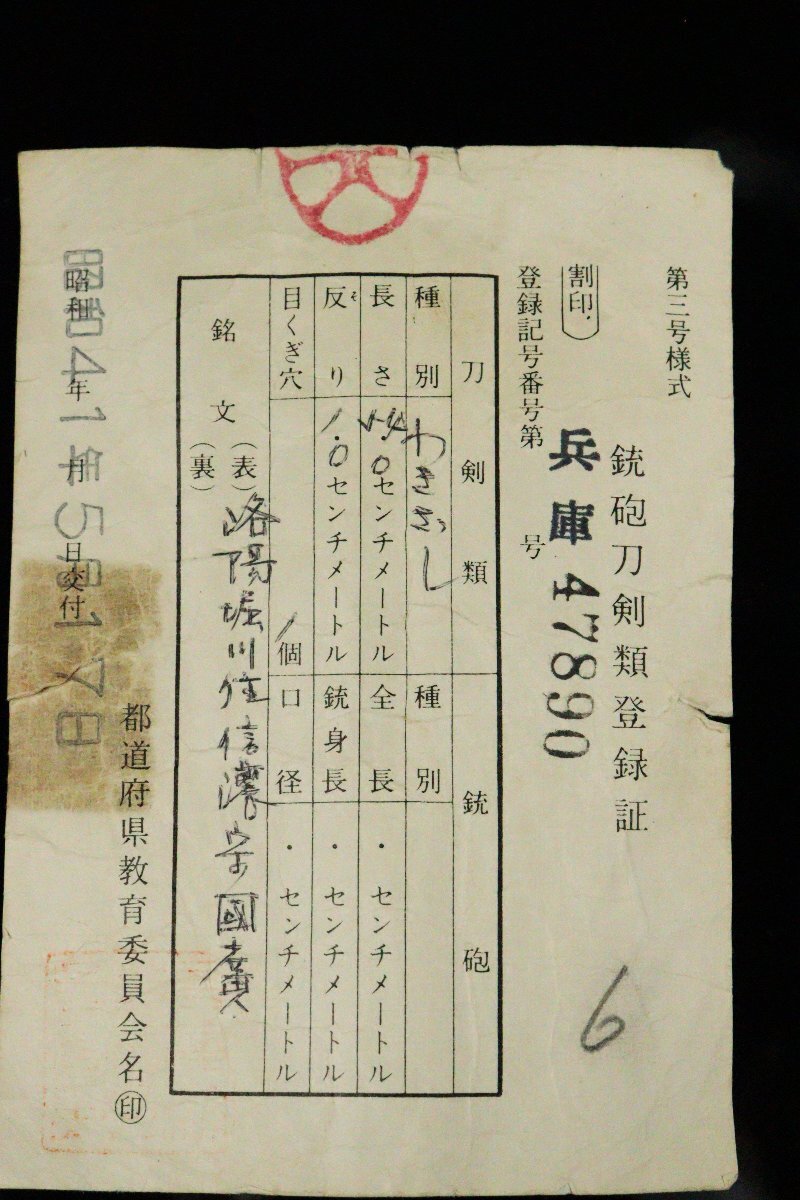 第三号様式
銃砲刀剣類登録証
割印
兵庫 47890
登録記号番号第 号
6
刀剣類
銃砲
種別 わきざし
種別
長さ .0センチメートル
全長 ・センチメートル
反り 1.0センチメートル
銃身長 ・センチメートル
目くぎ穴 1個
口径 ・センチメートル
銘文 (表) 洛陽堀川住信濃守國廣
(裏)
都道府県教育委員会名 印
昭和 年 月 日交付
昭和41年5月17日